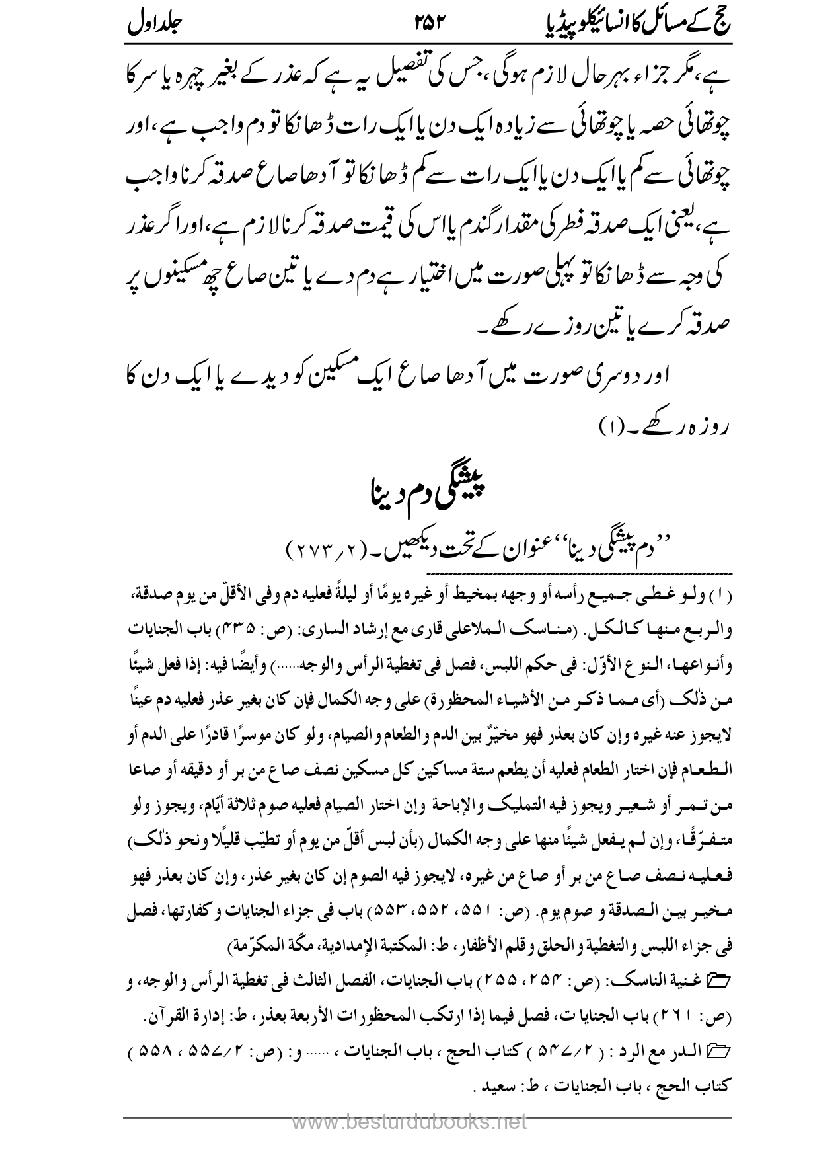 حج کے مسائل کا انسائیکلوپیڈیا ۲۵۲ جلد اول
ہے، مگر جزاء بہرحال لازم ہوگی، جس کی تفصیل یہ ہے کہ عذر کے بغیر چہرہ یا سر کا
چوتھائی حصہ یا چوتھائی سے زیادہ ایک دن یا ایک رات ڈھانکا تو دم واجب ہے، اور
چوتھائی سے کم یا ایک دن یا ایک رات سے کم ڈھانکا تو آدھا صاع صدقہ کرنا واجب
ہے، یعنی ایک صدقہ فطر کی مقدار گندم یا اس کی قیمت صدقہ کرنا لازم ہے، اور اگر عذر
کی وجہ سے ڈھانکا تو پہلی صورت میں اختیار ہے دم دے یا تین صاع چھ مسکینوں پر
صدقہ کرے یا تین روزے رکھے۔
اور دوسری صورت میں آدھا صاع ایک مسکین کو دیدے یا ایک دن کا
روزہ رکھے۔ (۱)
پیشگی دم دینا
’’دم پیشگی دینا‘‘ عنوان کے تحت دیکھیں۔ (۲/۲۷۳)
(۱) ولو غطى جميع رأسه أو وجهه بمخيط أو غيره يومًا أو ليلةً فعليه دم وفى الأقلّ من يوم صدقة،
والربع منها كالكل. (مناسک الملاعلی قاری مع إرشاد الساری: (ص: ۴۳۵) باب الجنايات
وأنواعها، النوع الأوّل: فى حكم اللبس، فصل فى تغطية الرأس والوجه......) وأيضًا فيه: إذا فعل شيئًا
من ذلک (أى مما ذكر من الأشياء المحظورة) على وجه الكمال فإن كان بغير عذر فعليه دم عينًا
لايجوز عنه غيره وإن كان بعذر فهو مخيّرٌ بين الدم والطعام والصيام، ولو كان موسرًا قادرًا على الدم أو
الطعام فإن اختار الطعام فعليه أن يطعم ستة مساكين كل مسكين نصف صاع من بر أو دقيقه أو صاعا
من تمر أو شعير ويجوز فيه التمليک والإباحة وإن اختار الصيام فعليه صوم ثلاثة أيّام، ويجوز ولو
متفرّقًا، وإن لم يفعل شيئًا منها على وجه الكمال (بأن لبس أقلّ من يوم أو تطيّب قليلًا ونحو ذلک)
فعليه نصف صاع من بر أو صاع من غيره، لايجوز فيه الصوم إن كان بغير عذر، وإن كان بعذر فهو
مخير بين الصدقة و صوم يوم. (ص: ۵۵۱، ۵۵۲، ۵۵۳) باب فى جزاء الجنايات وكفارتها، فصل
فى جزاء اللبس والتغطية والحلق وقلم الأظفار، ط: المكتبة الإمدادية، مكّة المكرّمة)
غنية الناسک: (ص: ۲۵۴، ۲۵۵) باب الجنايات، الفصل الثالث فى تغطية الرأس والوجه، و
(ص: ۲۶۱) باب الجنايات، فصل فيما إذا ارتكب المحظورات الأربعة بعذر، ط: إدارة القرآن.
الدر مع الرد: (۲/۵۴۷) كتاب الحج، باب الجنايات، ...... و: (ص: ۲/۵۵۷، ۵۵۸)
كتاب الحج، باب الجنايات، ط: سعيد.
www.besturdubooks.net